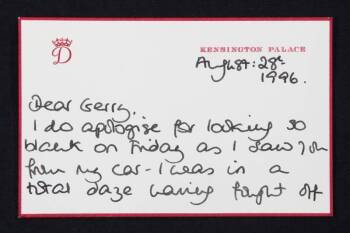 D
KENSINGTON PALACE
August: 28th
1996.
Dear Gerry,
I do apologise for looking so
blank on Friday as I saw you
from my car - I was in a
total daze having fought off